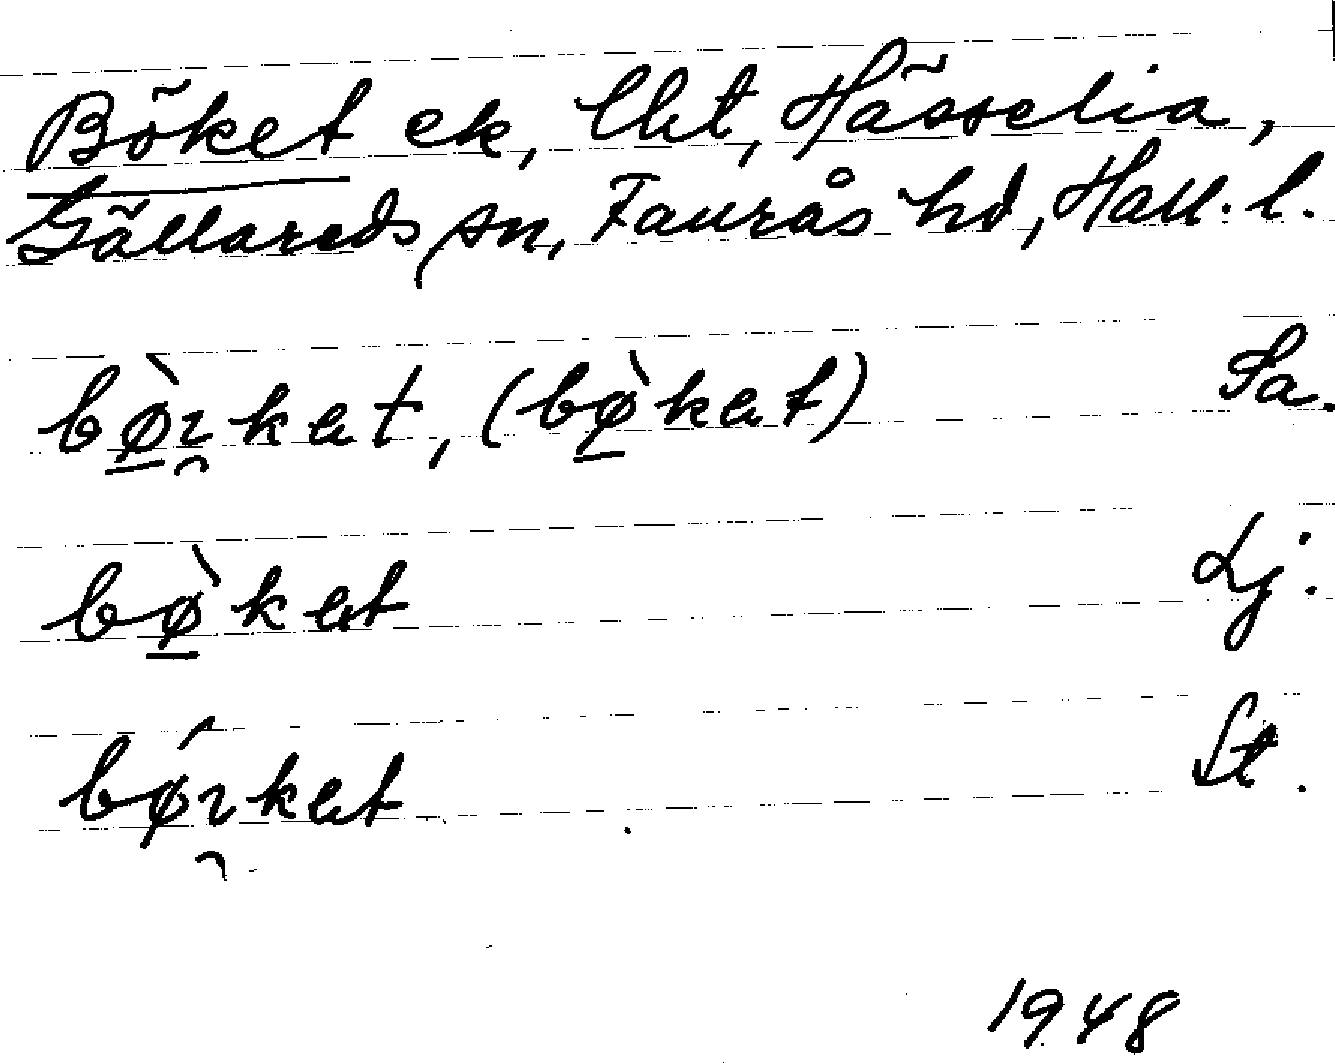 Böket ek, lht, Hässelia,
Gällareds sn, Faurås hd, Hall. l.
bø̠̀ɿ̯kɐt, (bø̠̀kɐt) Sa.
bø̠̀kɐt Lj.
bǿɿ̯kɐt St.
1948